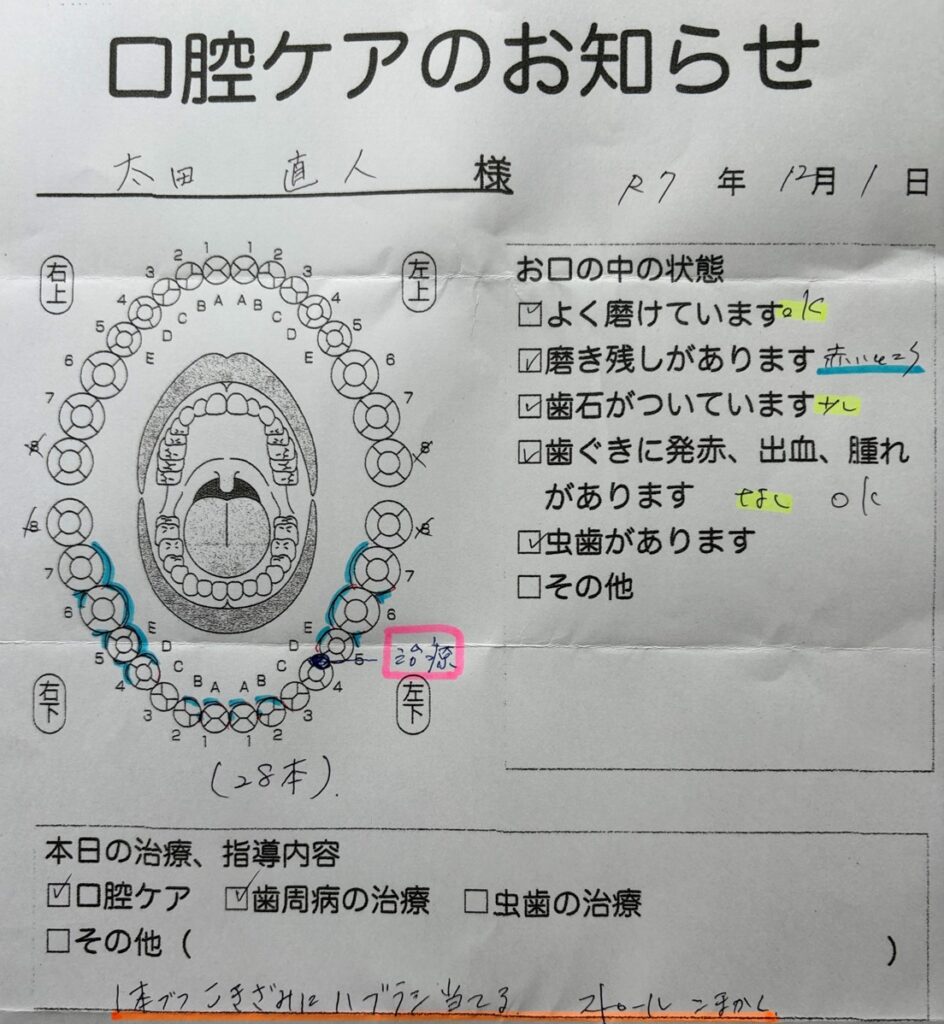 口腔ケアのお知らせ
太田 直人 様
R7 年 12月 1 日
右上
左上
1 1
2 2
3 3
4 4
5 5
6 6
7 7
8 8
A A
B B
C C
D D
E E
お口の中の状態
☑よく磨けています。ok
☑磨き残しがあります
☑歯石がついています 少し
☑歯ぐきに発赤、出血、腫れ
があります なし ok
☑虫歯があります
□その他
8 8
7 7
6 6
5 5
4 4
3 3
2 2
1 1
E E
D D
C C
B B
A A
治療
右下
左下
(28本).
本日の治療、指導内容
☑口腔ケア ☑歯周病の治療 □虫歯の治療
□その他 ( )
1本ずつ こきざみに ハブラシ当てる ストロール こまかく